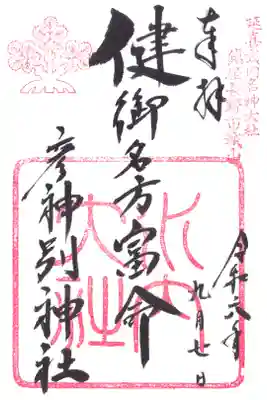 延喜式内名神大社
奉拝
健御名方富命
彦神別神社
水内
大社
令和六年
九月七日